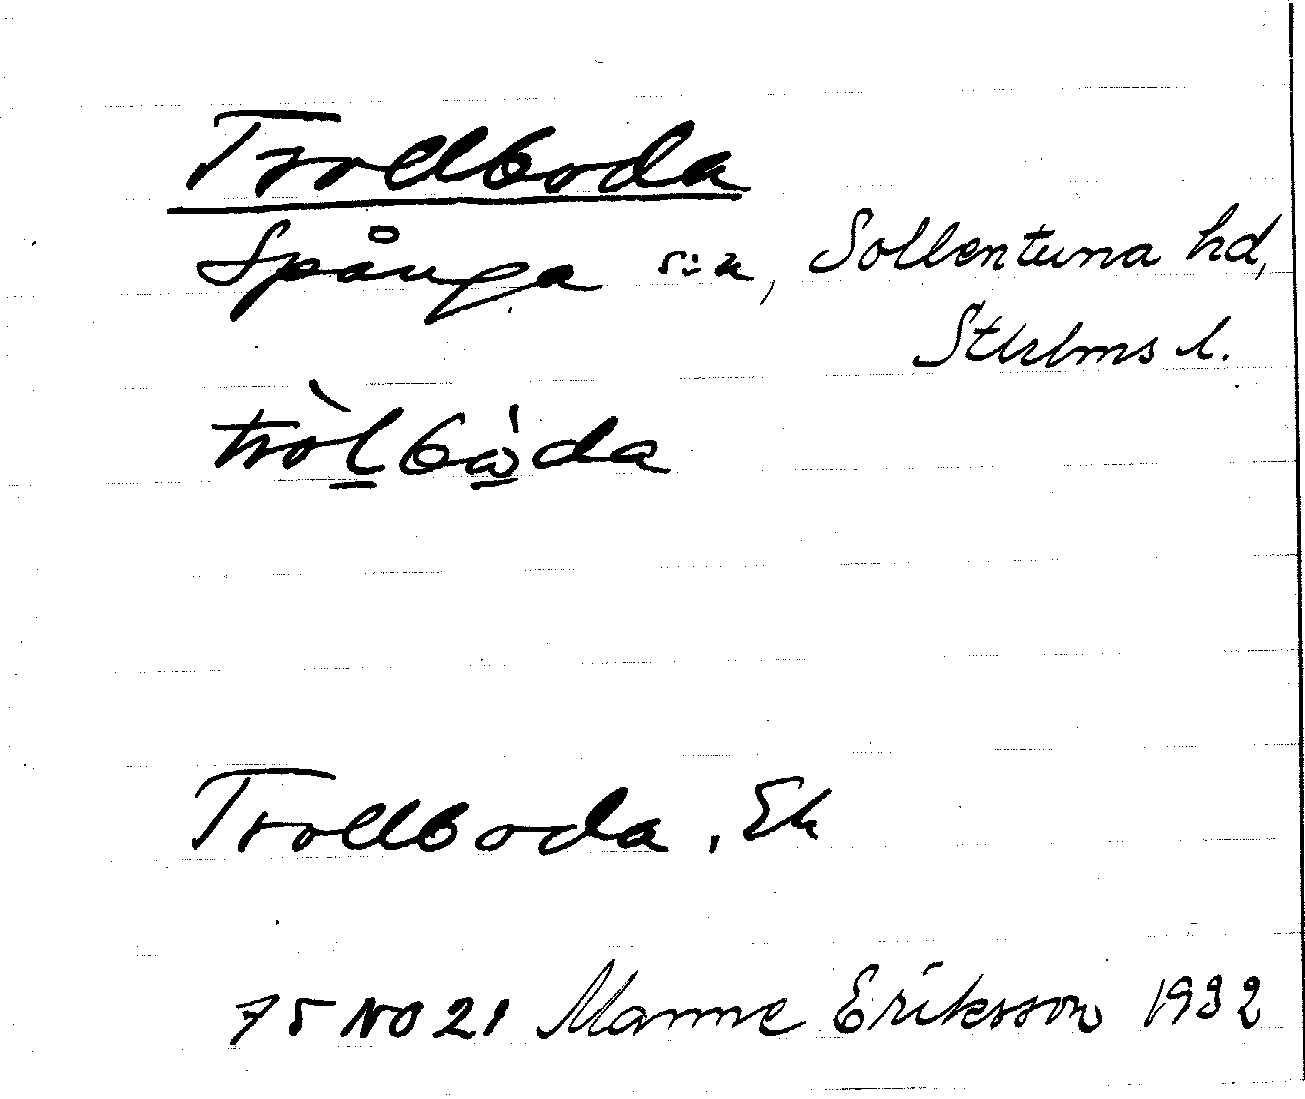 Trollboda
Spånga s:n, Sollentuna hd,
Sthlms l.
tròlbὼda
Trollboda, Ek
75 NO 21 Manne Eriksson 1932